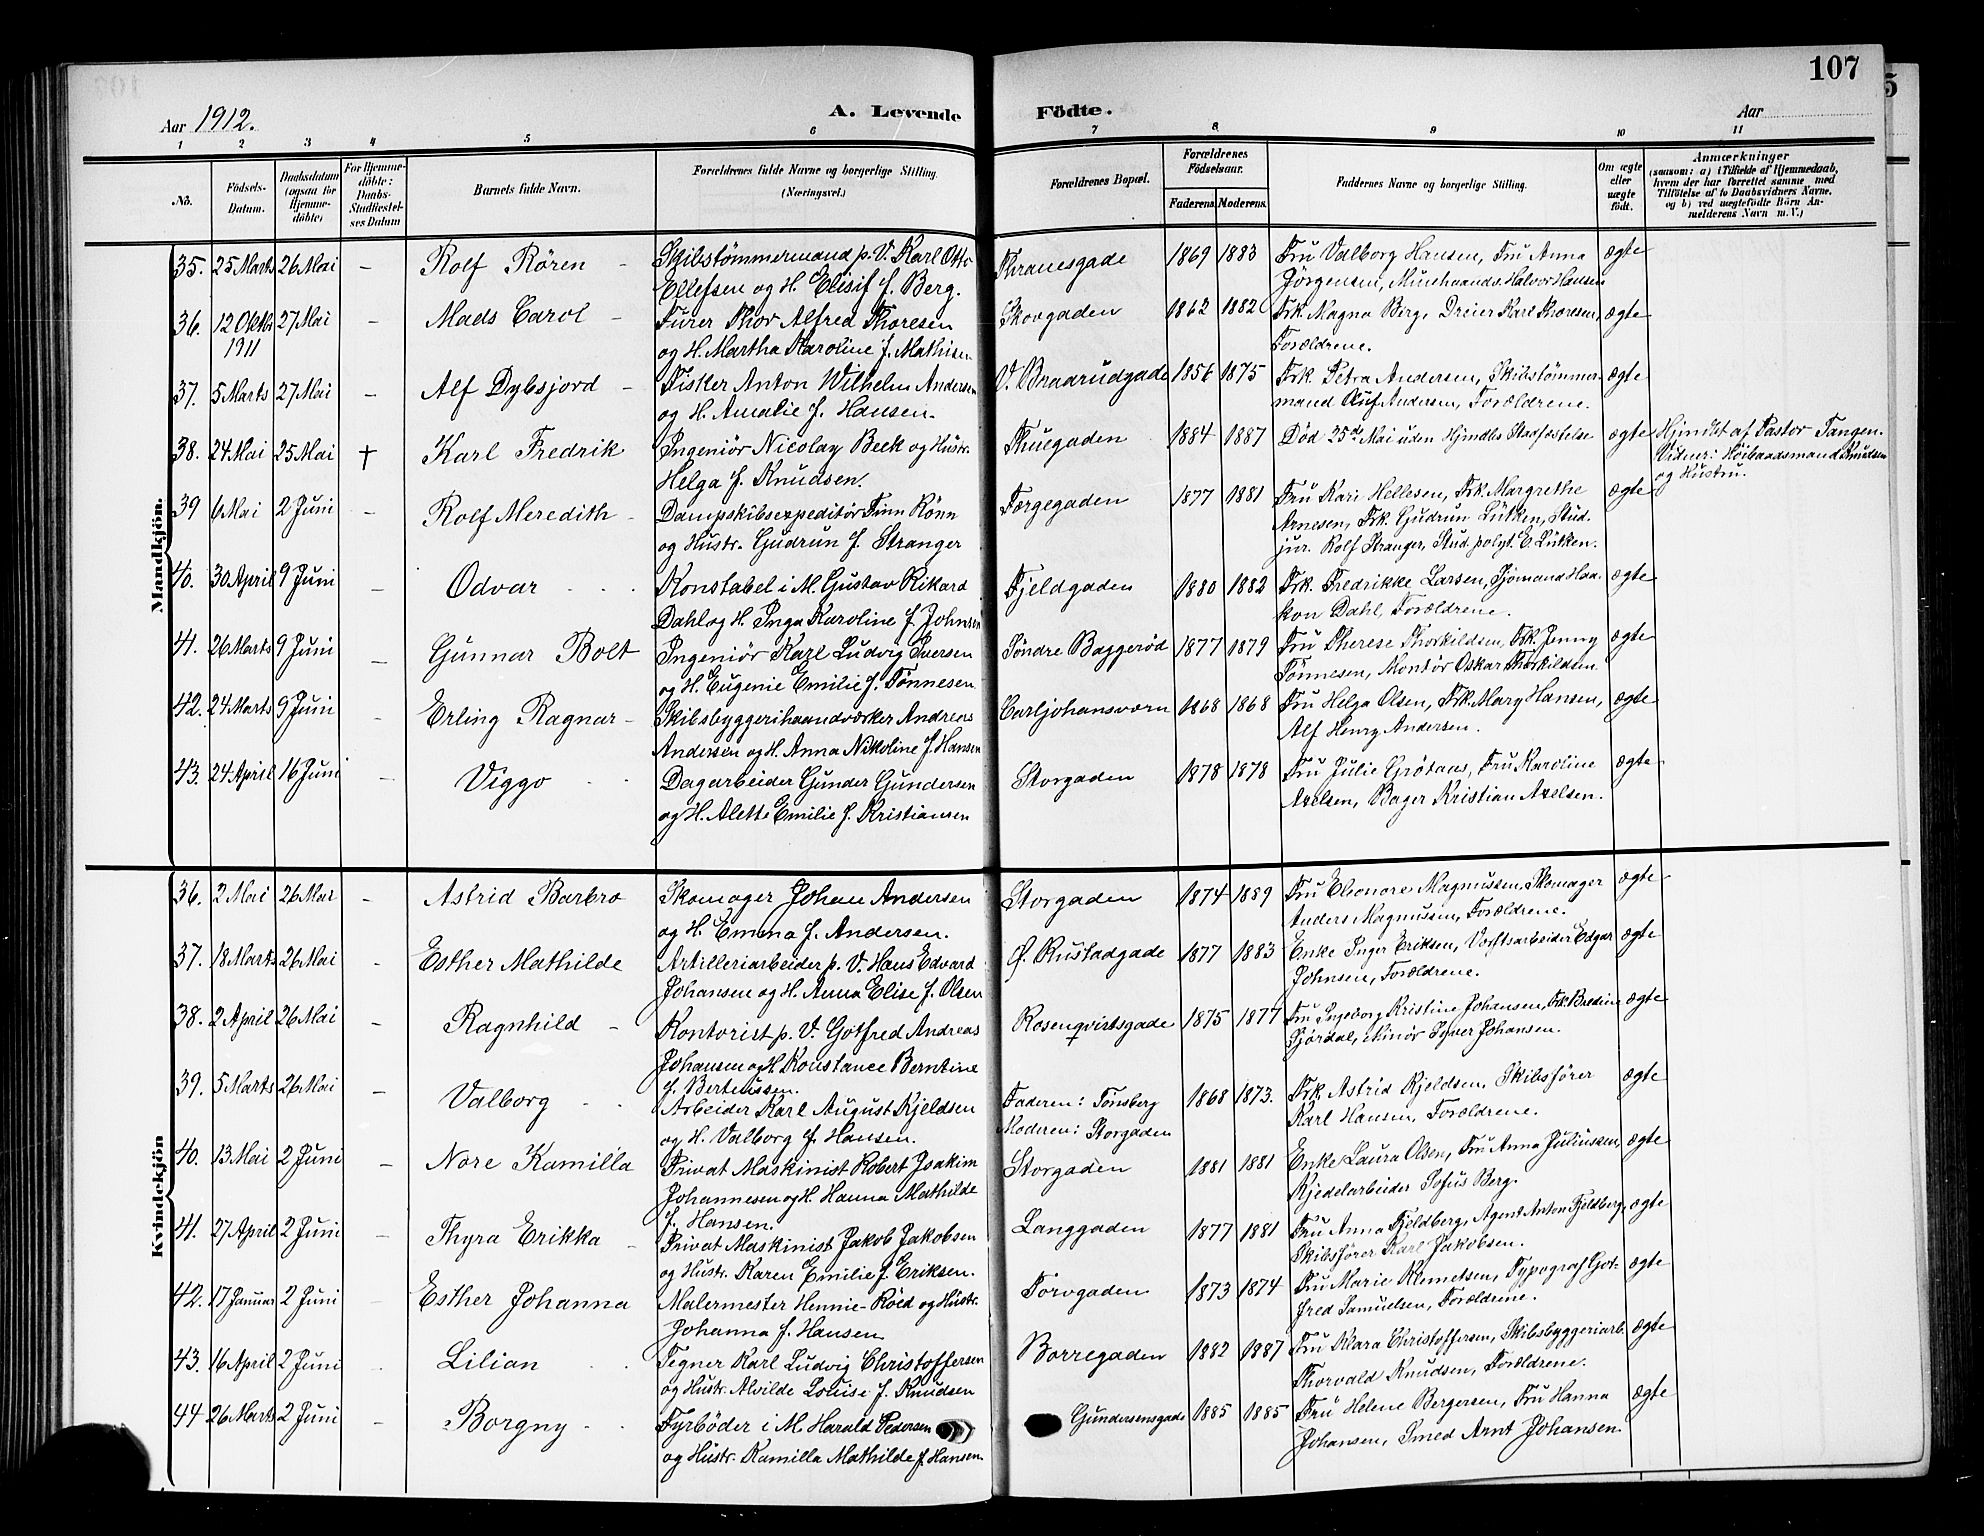 107
Aar 1912.
A. Levende Födte.
Aar
1 2 3 4 5 6 7 8 9 10 11
No.
Födsels-Datum.
Daabsdatum (ogsaa for Hjemmedöbte)
For Hjemmedöbte: Daabs-Stadfæstelses Datum
Barnets fulde Navn.
Forældrenes fulde Navne og borgerlige Stilling. (Næringsvei.)
Forældrenes Bopæl.
Forældrenes Födselsaar.
Faderens. Moderens.
Faddernes Navne og borgerlige Stilling.
Om ægte eller uægte födt.
Anmærkninger
(saasom: a) i Tilfælde af Hjemmedaab, hvem der har forrettet samme med Tilföielse af to Daabsvidners Navne, og b) ved uægtefödte Börn Anmelderens Navn m. V.)
Mandkjön.
35. 25 Marts 26 Mai – Rolf Rören – Skibstømmermand p. V. Karl Otto Thranesgade 1869 1883 Fru Valborg Hansen, Fru Anna ægte
Ellefsen og H. Elisif f. Berg. Jörgensen, Minehaandv. Halvor Hansen
36. 12 Oktbr 27 Mai – Mads Carol – Furer Thor Alfred Thoresen Skovgaden 1862 1882 Frk. Magna Berg, Dreier Karl Thoresen, ægte
1911 og H. Martha Karoline f. Mathisen Forældrene.
37. 5 Marts 27 Mai – Alf Dybsjord – Fisker Anton Wilhelm Andersen V. Braarudgade 1856 1875 Frk. Petra Andersen, Skibstømmer- ægte
og H. Amalie f. Hansen. mand Oluf Andersen, Forældrene.
38. 24 Mai 25 Mai † Karl Fredrik Ingeniør Nicolay Beck og Hustr. Thuegaden 1884 1887 Død 25de Mai uden Hjmdbs Stadfæstelse ægte Hjmdbt af Pastor Tangen.
Helga f. Knudsen. Vidner: Höibaadsmand Knudsen
og Hustru.
39 6 Mai 2 Juni – Rolf Meredith – Dampskibsexpeditör Finn Rönn Færgegaden 1877 1881 Fru Kari Hellesen, Frk. Margrethe ægte
og Hustr. Gudrun f. Stranger Arnesen, Frk. Gudrun Lütken, Stud.
jur. Rolf Stranger, Stud. polyt. E. Lütken.
40. 30 April 9 Juni – Odvar Konstabel i M. Gustav Rikard Fjeldgaden 1880 1882 Frk. Fredrikke Larsen, Sjömand Haa- ægte
Dahl og H. Inga Karoline f. Johnsen kon Dahl, Forældrene.
41. 26 Marts 9 Juni – Gunnar Bolt Ingeniør Karl Ludvig Iversen Söndre Baggeröd 1877 1879 Fru Therese Thorkildsen, Frk. Jenny ægte
og H. Eugenie Emilie f. Tönnesen Tönnesen, Montör Oskar Thorkildsen
42. 24 Marts 9 Juni – Erling Ragnar – Skibsbyggerihaandværker Andreas Carljohansværn 1868 1868 Fru Helga Olsen, Frk. Mary Hansen, ægte
Andersen og H. Anna Nikoline f. Hansen Alf Henry Andersen.
43. 24 April 16 Juni – Viggo Dagarbeider Gunder Gundersen Storgaden 1878 1878 Fru Julie Grötaas, Fru Karoline ægte
og H. Alette Emilie f. Kristiansen Axelsen, Bager Kristian Axelsen.
Kvindekjön
36. 2 Mai 26 Mai – Astrid Barbro Skomager Johan Andersen Storgaden 1874 1889 Fru Eleonore Magnussen, Skomager ægte
og H. Emma f. Andersen. Anders Magnussen, Forældrene.
37. 18 Marts 26 Mai – Esther Mathilde Artilleriarbeider p. V. Hans Edvard Ø. Rustadgade 1877 1883 Enke Inger Eriksen, Værftsarbeider Edgar ægte
Johansen og H. Anna Elise f. Olsen Johnsen, Forældrene.
38. 2 April 26 Mai – Ragnhild – Kontorist p. V. Gotfred Andreas Rosenqvistsgade 1875 1877 Fru Ingeborg Kristine Johansen, Frk Bredine ægte
Johansen og H. Konstance Berntine Sjördal, Minör Syver Johansen.
f. Berteussen.
39. 5 Marts 26 Mai – Valborg Arbeider Karl August Kjeldsen Faderen: Tönsberg 1868 1873. Frk. Astrid Kjeldsen, Skibsförer ægte
og H. Valborg f. Hansen. Moderen: Storgaden Karl Hansen, Forældrene.
40. 13 Mai 2 Juni – Nore Kamilla Privat Maskinist Robert Joakim Storgaden 1881 1881 Enke Laura Olsen, Fru Anna Juliussen ægte
Johannesen og H. Hanna Mathilde Kjedelarbeider Sofus Berg.
f. Hansen.
41. 27 April 2 Juni – Thyra Erikka – Privat Maskinist Jakob Jakobsen Langgaden 1877 1881 Fru Anna Fjeldberg, Agent Anton Fjeldberg, ægte
og Hustr. Karen Emilie f. Eriksen. Skibsförer Karl Jakobsen.
42. 17 Januar 2 Juni – Esther Johanna Malermester Hennie-Röed og Hustr. Torvgaden 1873 1874 Fru Marie Klemetsen, Typograf Got- ægte
Johanna f. Hansen fred Samuelsen, Forældrene.
43. 16 April 2 Juni – Lilian Tegner Karl Ludvig Christoffersen Borregaden 1882 1887 Fru Klara Christoffersen, Skibsbyggeriarb. ægte
og Hustr. Alvilde Louise f. Knudsen Thorvald Knudsen, Forældrene.
44 26 Marts 2 Juni – Borgny Fyrböder i M. Harald Pedersen Gundersensgade 1885 1885 Fru Helene Bergersen, Fru Hanna ægte
og Hustr. Kamilla Mathilde f. Hansen. Johansen, Smed Arnt Johansen.